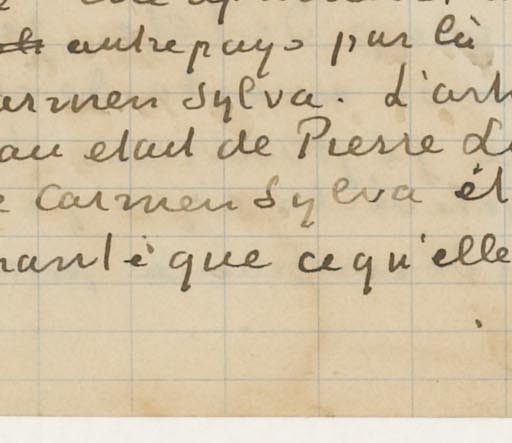 autre pays par là
armen Sylva. L'art
au etait de Pierre L
e Carmen Sylva ét
rant è que ce qu'elle